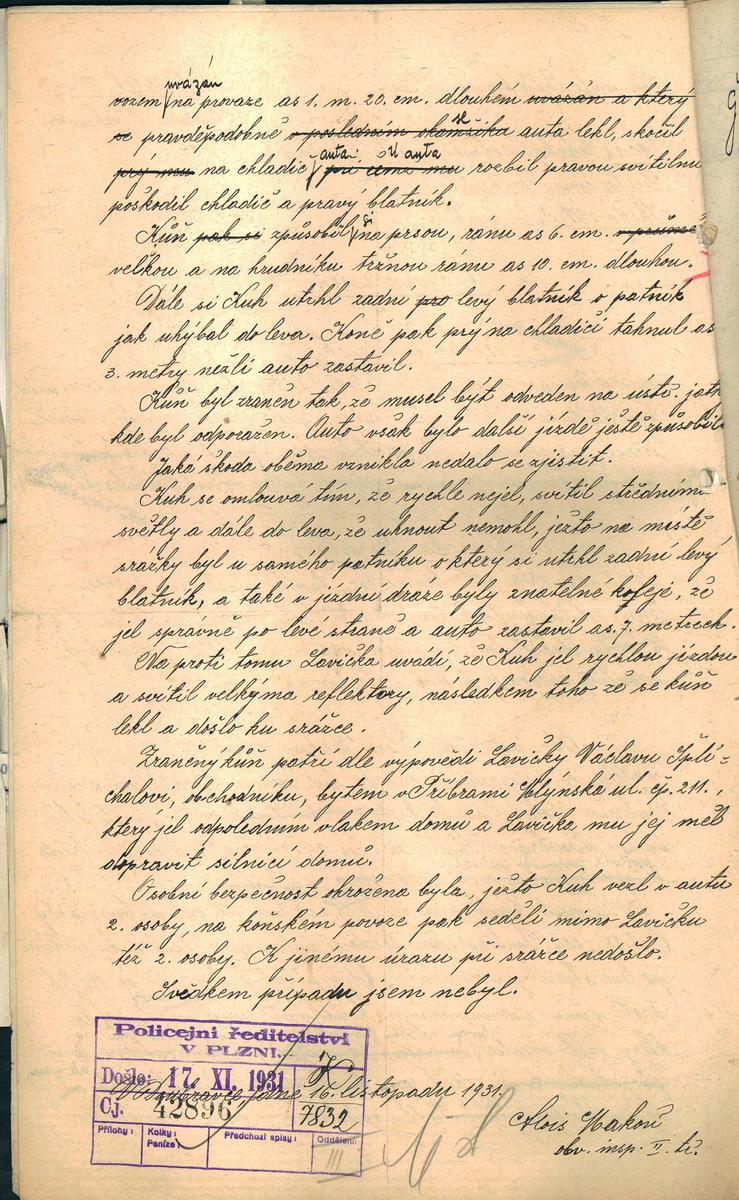 uvázán
vozem na provaze as 1. m. 20. cm. dlouhém uvázán a který
se pravděpodobně v posledním okamžiku se auta lekl, skočil
prý mu na chladič auta. U auta při čemž mu rozbil pravou svítilnu
poškodil chladič a pravý blatník.
Kůň pak si způsobil si na prsou, ránu as 6. cm. v průmě
velkou a na hrudníku tržnou ránu as 10. cm. dlouhou.
Dále si Kuh utrhl zadní pro levý blatník o patník
jak uhýbal do leva. Koně pak prý na chladiči táhnul as
3. metry nežli auto zastavil.
Kůň byl zraněn tak, že musel být odveden na ústř. jatk
kde byl odporažen. Auto však bylo další jízdě ještě způsobilé
Jaká škoda oběma vznikla nedalo se zjistit.
Kuh se omlouvá tím, že rychle nejel, svítil středními
světly a dále do leva, že uhnout nemohl, ježto na místě
srážky byl u samého patníku o který si utrhl zadní levý
blatník, a také v jízdní dráze byly znatelné koleje, že
jel správně po levé straně a auto zastavil as. 7. metrech.
Na proti tomu Lavička uvádí, že Kuh jel rychlou jízdou
a svítil velkýma reflektory, následkem toho že se kůň
lekl a došlo ku srážce.
Zraněný kůň patří dle výpovědi Lavičky Václavu Špli=
chalovi, obchodníku, bytem v Příbrami Mlýnská ul. čp. 211.,
který jel odpoledním vlakem domů a Lavička mu jej měl
dopravit silnicí domů.
Osobní bezpečnost ohrožena byla, ježto Kuh vezl v autu
2. osoby, na koňském povoze pak seděli mimo Lavičku
též 2. osoby. K jinému úrazu při srážce nedošlo.
Svědkem případu jsem nebyl.
Policejní ředitelství
V PLZNI.
Došlo: 17. XI. 1931
V Doubravce, dne 16. listopadu 1931.
Čj. 42896 7832
Přílohy: Kolky: Peníze: Předchozí spisy: Oddělení:
III
Alois Makoň
obv. insp. II. tř.